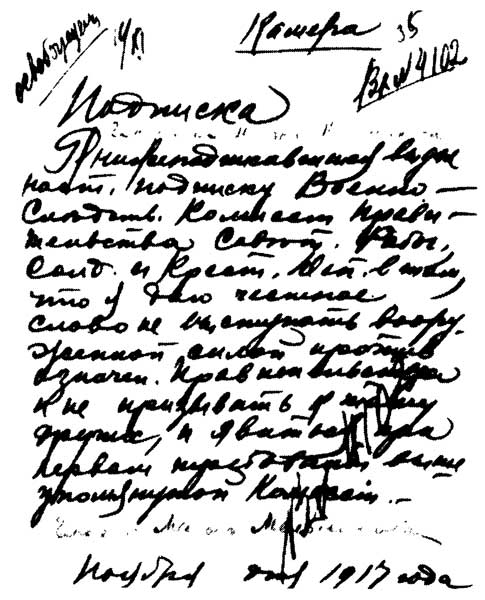 освобожден 14/XI Камера 35
Вр № 4102
Подписка
Я нижеподписавшийся выдал
наст. подписку Военно-
Следств. Комисст прави-
тельства Совет. Рабоч,
Солд. и Крест. Деп. в том,
что я даю честное
слово не выступать воору
женной силой против
означен. Правительства
и не призывать к тому
других, и явиться при
первом требовании выше
упомянутой Комисст.-
Ноября дня 1917 года